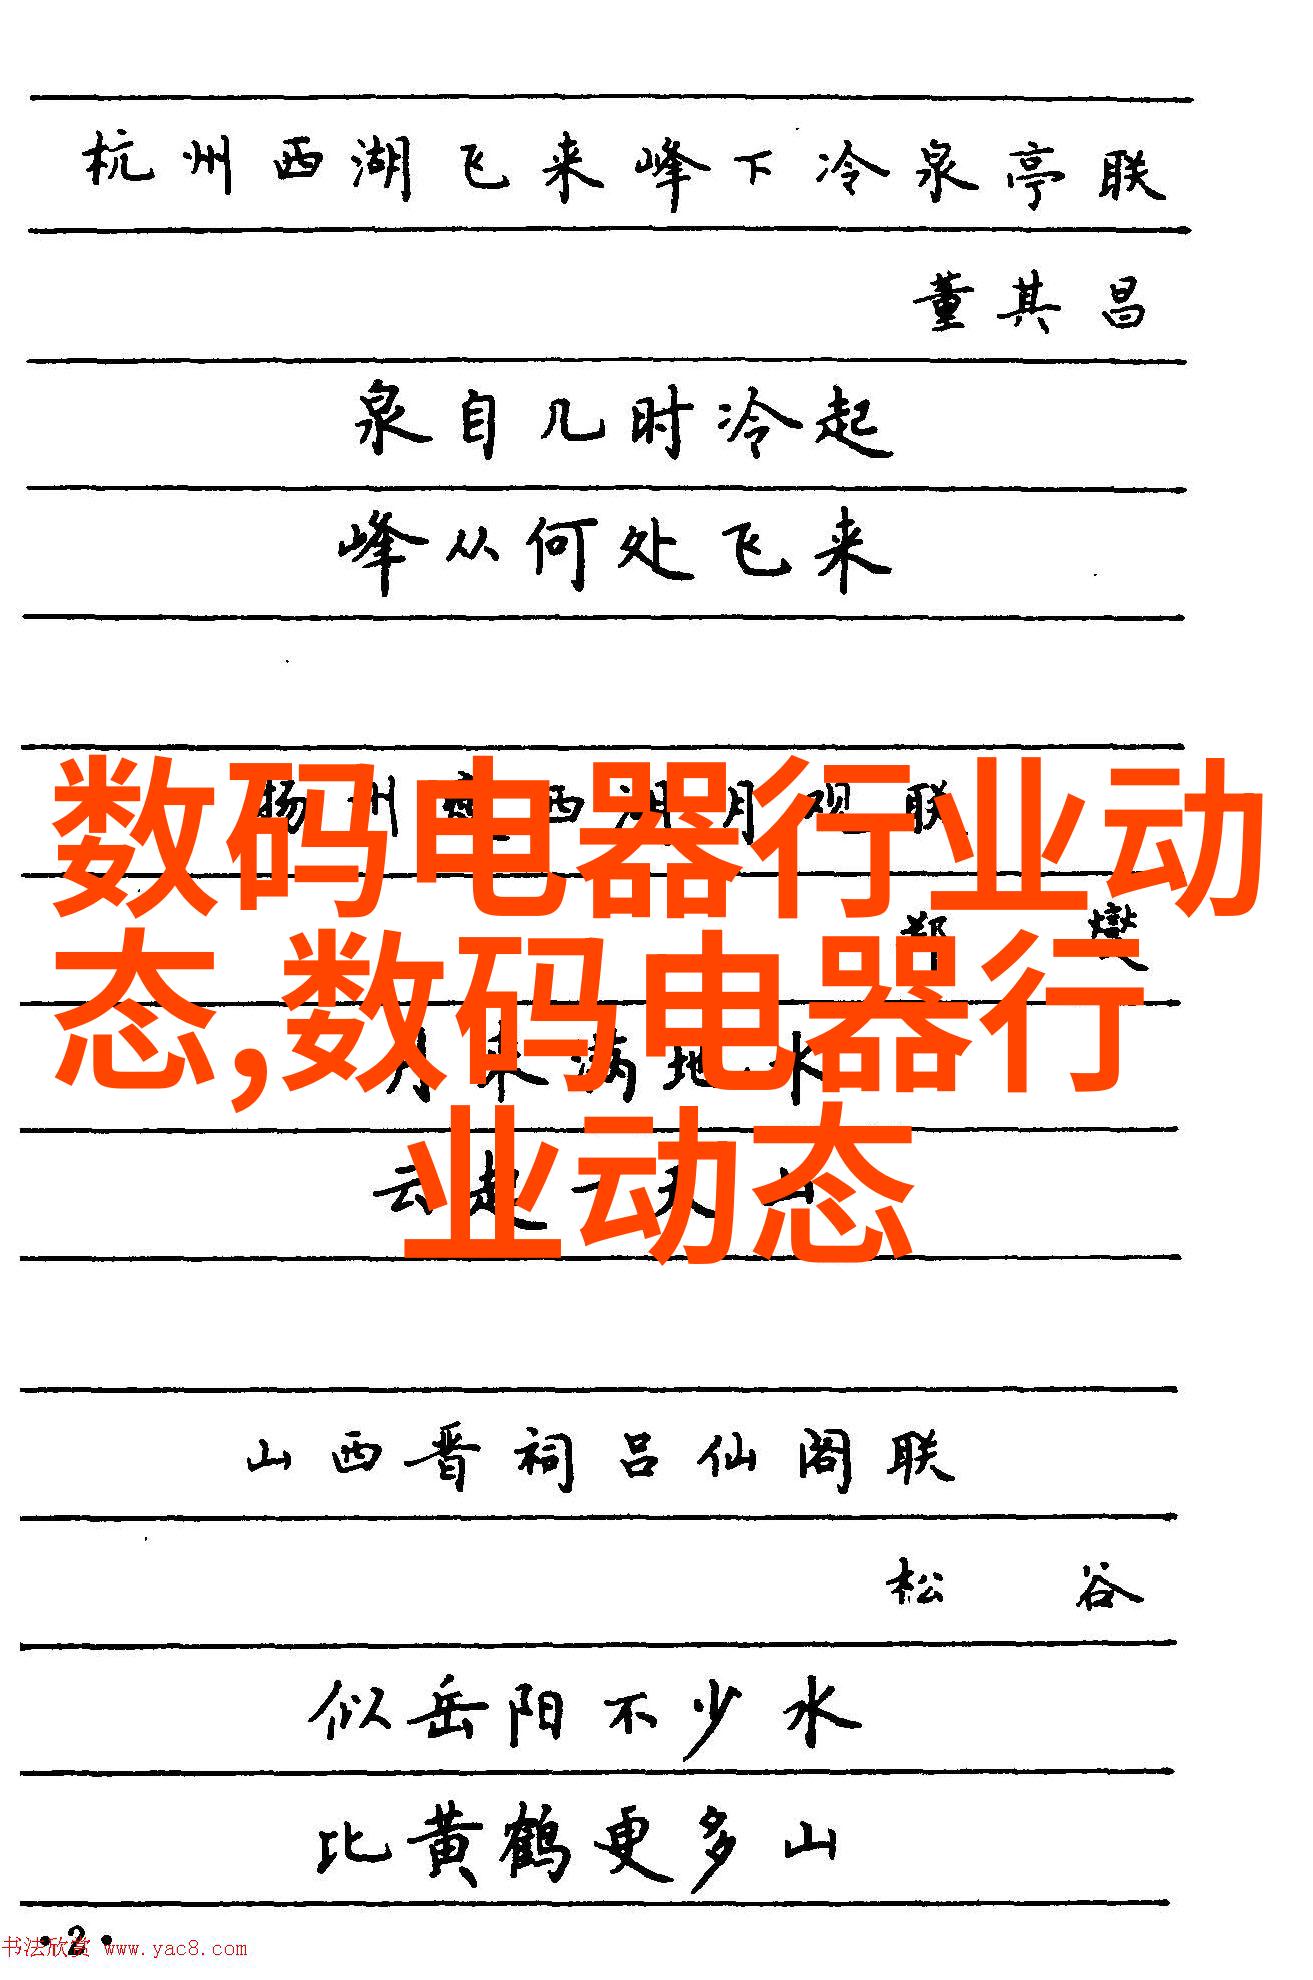 杭州西湖飞来峰下冷泉亭联
董其昌
泉自几时冷起
峰从何处飞来
扬州瘦西湖月观联
数码电器行业动
郑燮
态,数码电器行
月来满地水
业动态
云起一天山
山西晋祠吕仙阁联
松谷
似岳阳不少水
比黄鹤更多山
·2·
书法欣赏 www.yac8.com